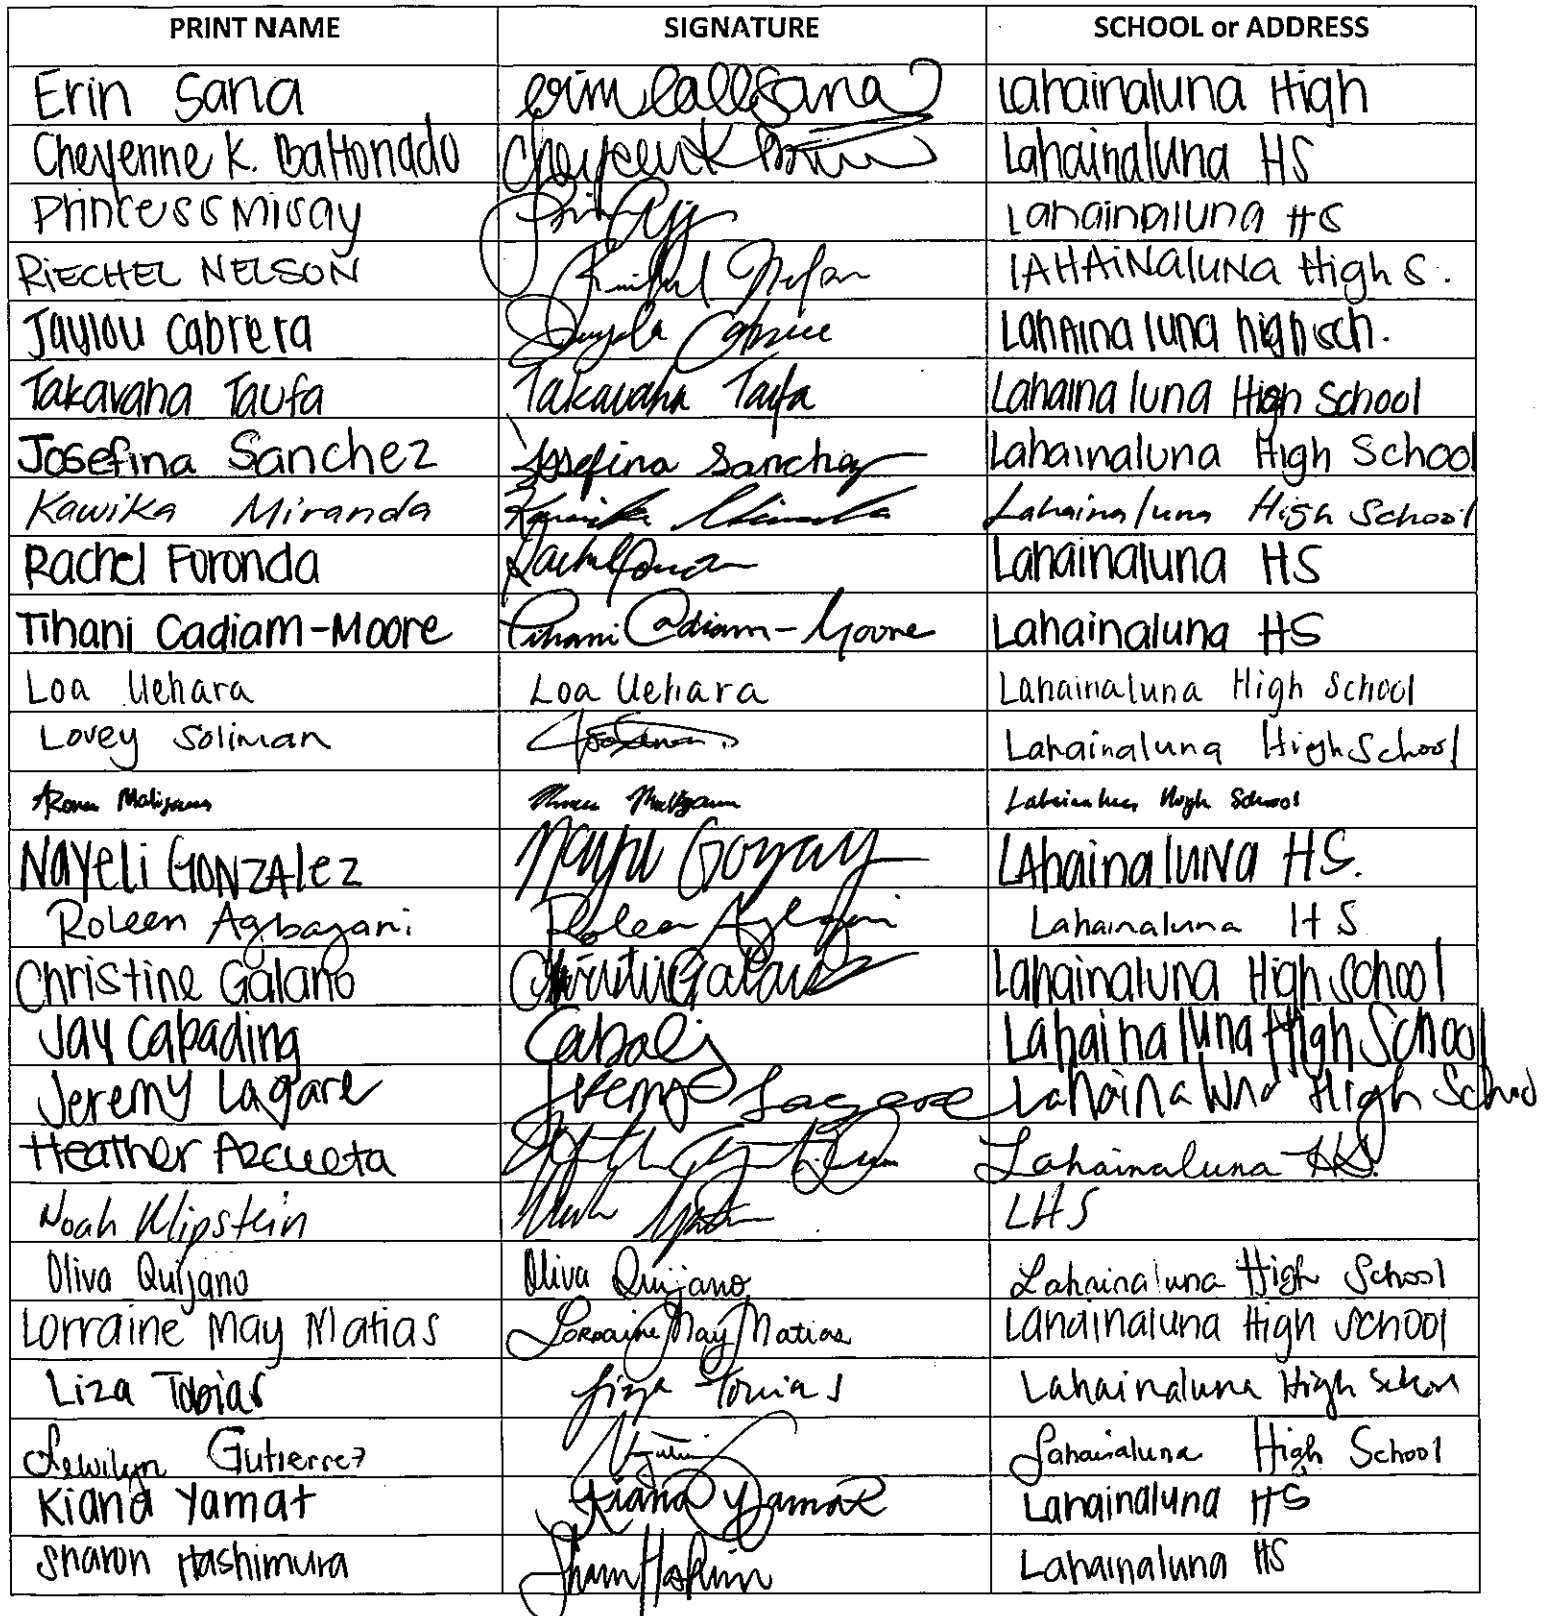 PRINT NAME SIGNATURE SCHOOL or ADDRESS
Erin Sana Sana Lahainaluna High
Cheyenne K. Baltonado Lahainaluna HS
Princess Misay Lahainaluna HS
RIECHEL NELSON LAHAINALUNA High S.
Jaylou Cabrera Lahaina luna high sch.
Takavaha Taufa Takavaha Taufa Lahaina luna High School
Josefina Sanchez Josefina Sanchez Lahainaluna High School
Kawika Miranda Kawika Miranda Lahainaluna High School
Rachel Foronda Rachel Lahainaluna HS
Tihani Cadiam-Moore Tihani Cadiam-Moore Lahainaluna HS
Loa Uehara Loa Uehara Lahainaluna High School
Lovey Soliman Lahainaluna High School
High School
NAYELi GONZALEZ LAhainaluNa HS.
Roleen Agbayani Roleen Lahainaluna HS
Christine Galano Lahainaluna High School
Jay Cabading Lahaina luna High School
Jeremy Lagare Jeremy Lagare Lahainaluna High School
Heather Azcueta Lahainaluna HS.
Noah Klipstein LHS
Oliva Quijano Oliva Quijano Lahainaluna High School
Lorraine May Matias Lorraine May Matias Lahainaluna High School
Liza Tobias Liza Tobias Lahainaluna High School
Gutierrez Lahainaluna High School
Kiana Yamat Kiana Yamat Lahainaluna HS
Sharon Hashimura Lahainaluna HS